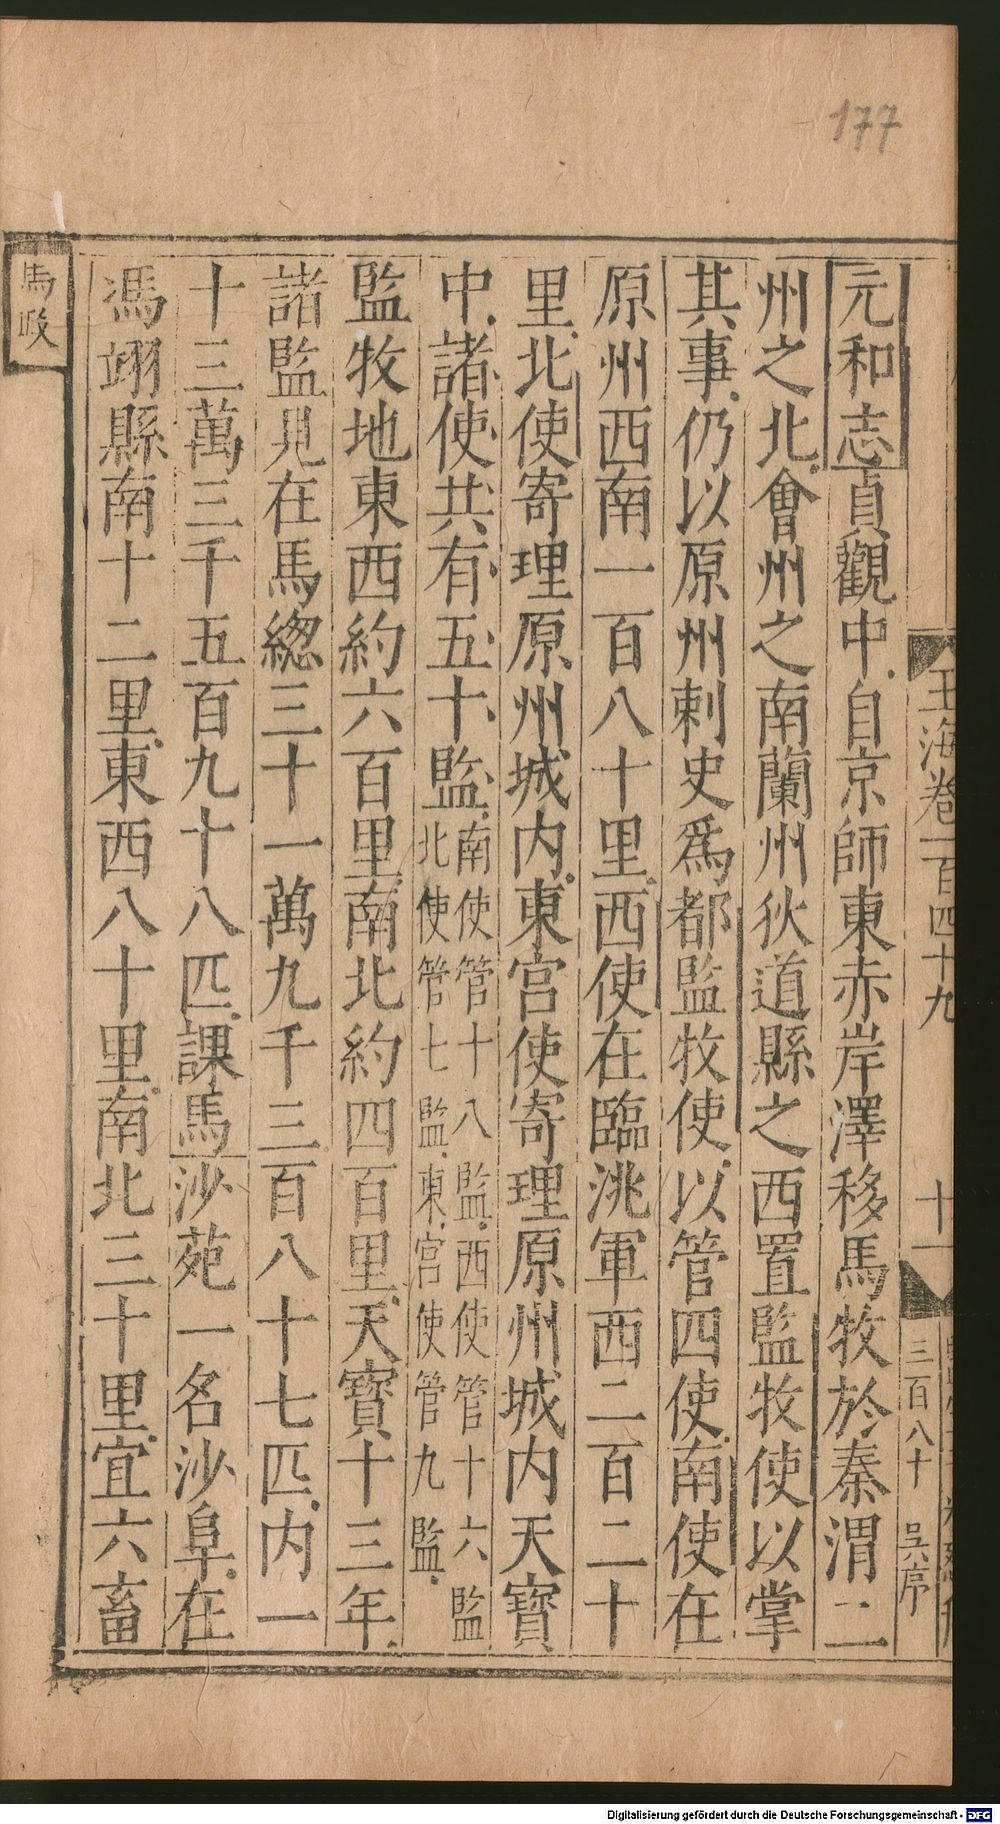 177
玉海卷一百四十九
十一
三百八十
吴序
元和志貞觀中自京師東赤岸澤移馬牧於秦渭二
州之北會州之南蘭州狄道縣之西置監牧使以掌
其事仍以原州刺史爲都監牧使以管四使南使在
原州西南一百八十里西使在臨洮軍西二百二十
里北使寄理原州城内東宮使寄理原州城内天寶
中諸使共有五十監南使管十八監西使管十六監
北使管七監東宮使管九監
監牧地東西約六百里南北約四百里天寶十三年
諸監見在馬緫三十一萬九千三百八十七匹内一
十三萬三千五百九十八匹課馬沙苑一名沙阜在
馮翊縣南十二里東西八十里南北三十里宜六畜
馬政
Digitalisierung gefördert durch die Deutsche Forschungsgemeinschaft - DFG